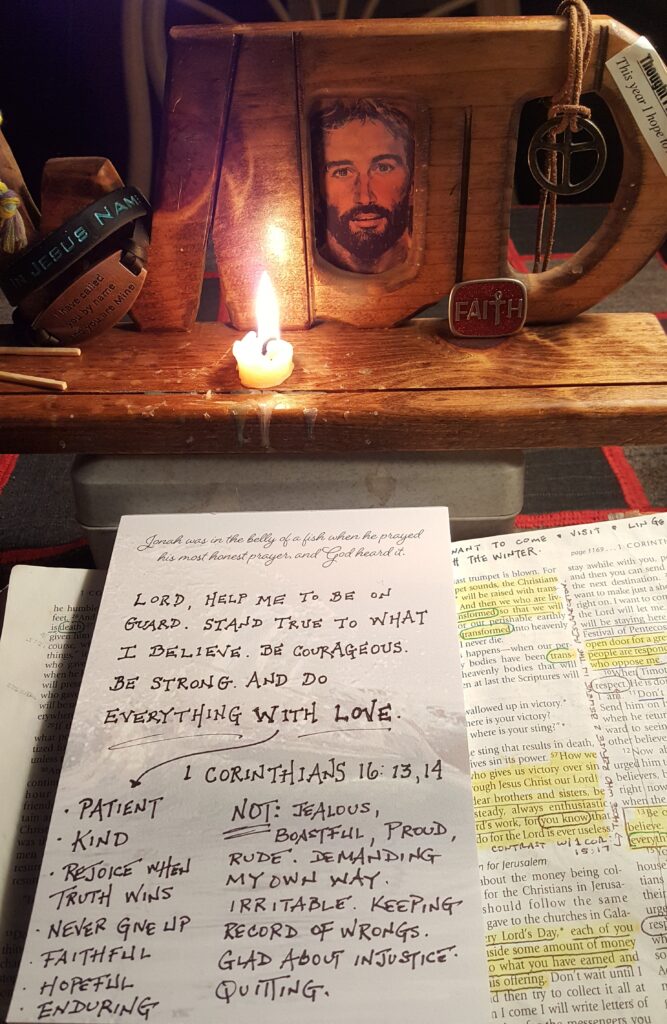 IN JESUS NAME
I have called
you by name
you are Mine
FAITH
Thought
This year I hope
Jonah was in the belly of a fish when he prayed
his most honest prayer, and God heard it.
LORD, HELP ME TO BE ON
GUARD. STAND TRUE TO WHAT
I BELIEVE. BE COURAGEOUS.
BE STRONG. AND DO
EVERYTHING WITH LOVE.
1 CORINTHIANS 16:13,14
• PATIENT
• KIND
• REJOICE WHEN
TRUTH WINS
• NEVER GIVE UP
• FAITHFUL
• HOPEFUL
• ENDURING
NOT: JEALOUS,
BOASTFUL, PROUD,
RUDE. DEMANDING
MY OWN WAY.
IRRITABLE. KEEPING
RECORD OF WRONGS.
GLAD ABOUT INJUSTICE.
QUITTING.
he humble
feet.
is death
given him
WANT TO COME • VISIT •
THE WINTER.
page 1169
trumpet is blown. For
pet sounds, the Christians
will be raised with trans-
And then we who are liv-
so that we will
our perishable earthly
transformed into heavenly
never die.
happens—when our
bodies have been trans-
heavenly bodies that will
en at last the Scriptures will
wallowed up in victory.
here is your victory?
where is your sting?"
the sting that results in death,
gives sin its power. 57 How we
who gives us victory over sin
through Jesus Christ our Lord!
dear brothers and sisters, be
steady, always enthusiastic
Lord's work, for you know that
do for the Lord is ever useless
CONTRAST W/ 1 COR.
15:17
on for Jerusalem
about the money being col-
for the Christians in Jerusa-
should follow the same
gave to the churches in Gala-
ery Lord's Day, each of you
aside some amount of money
to what you have earned and
his offering. Don't wait until I
d then try to collect it all at
n I come I will write letters of
for the messengers you
stay awhile with you,
and then you can send
the next destination.
want to make just a
right on. I want to com
the Lord will let me
will be staying here
Festival of Pentecos
open door for a gre
people are respon
who oppose me.
When Timo
respect. He is do
am. Don't
Send him on
when he retu
ward to seein
other believe
Now a
urged him t
believers,
right now